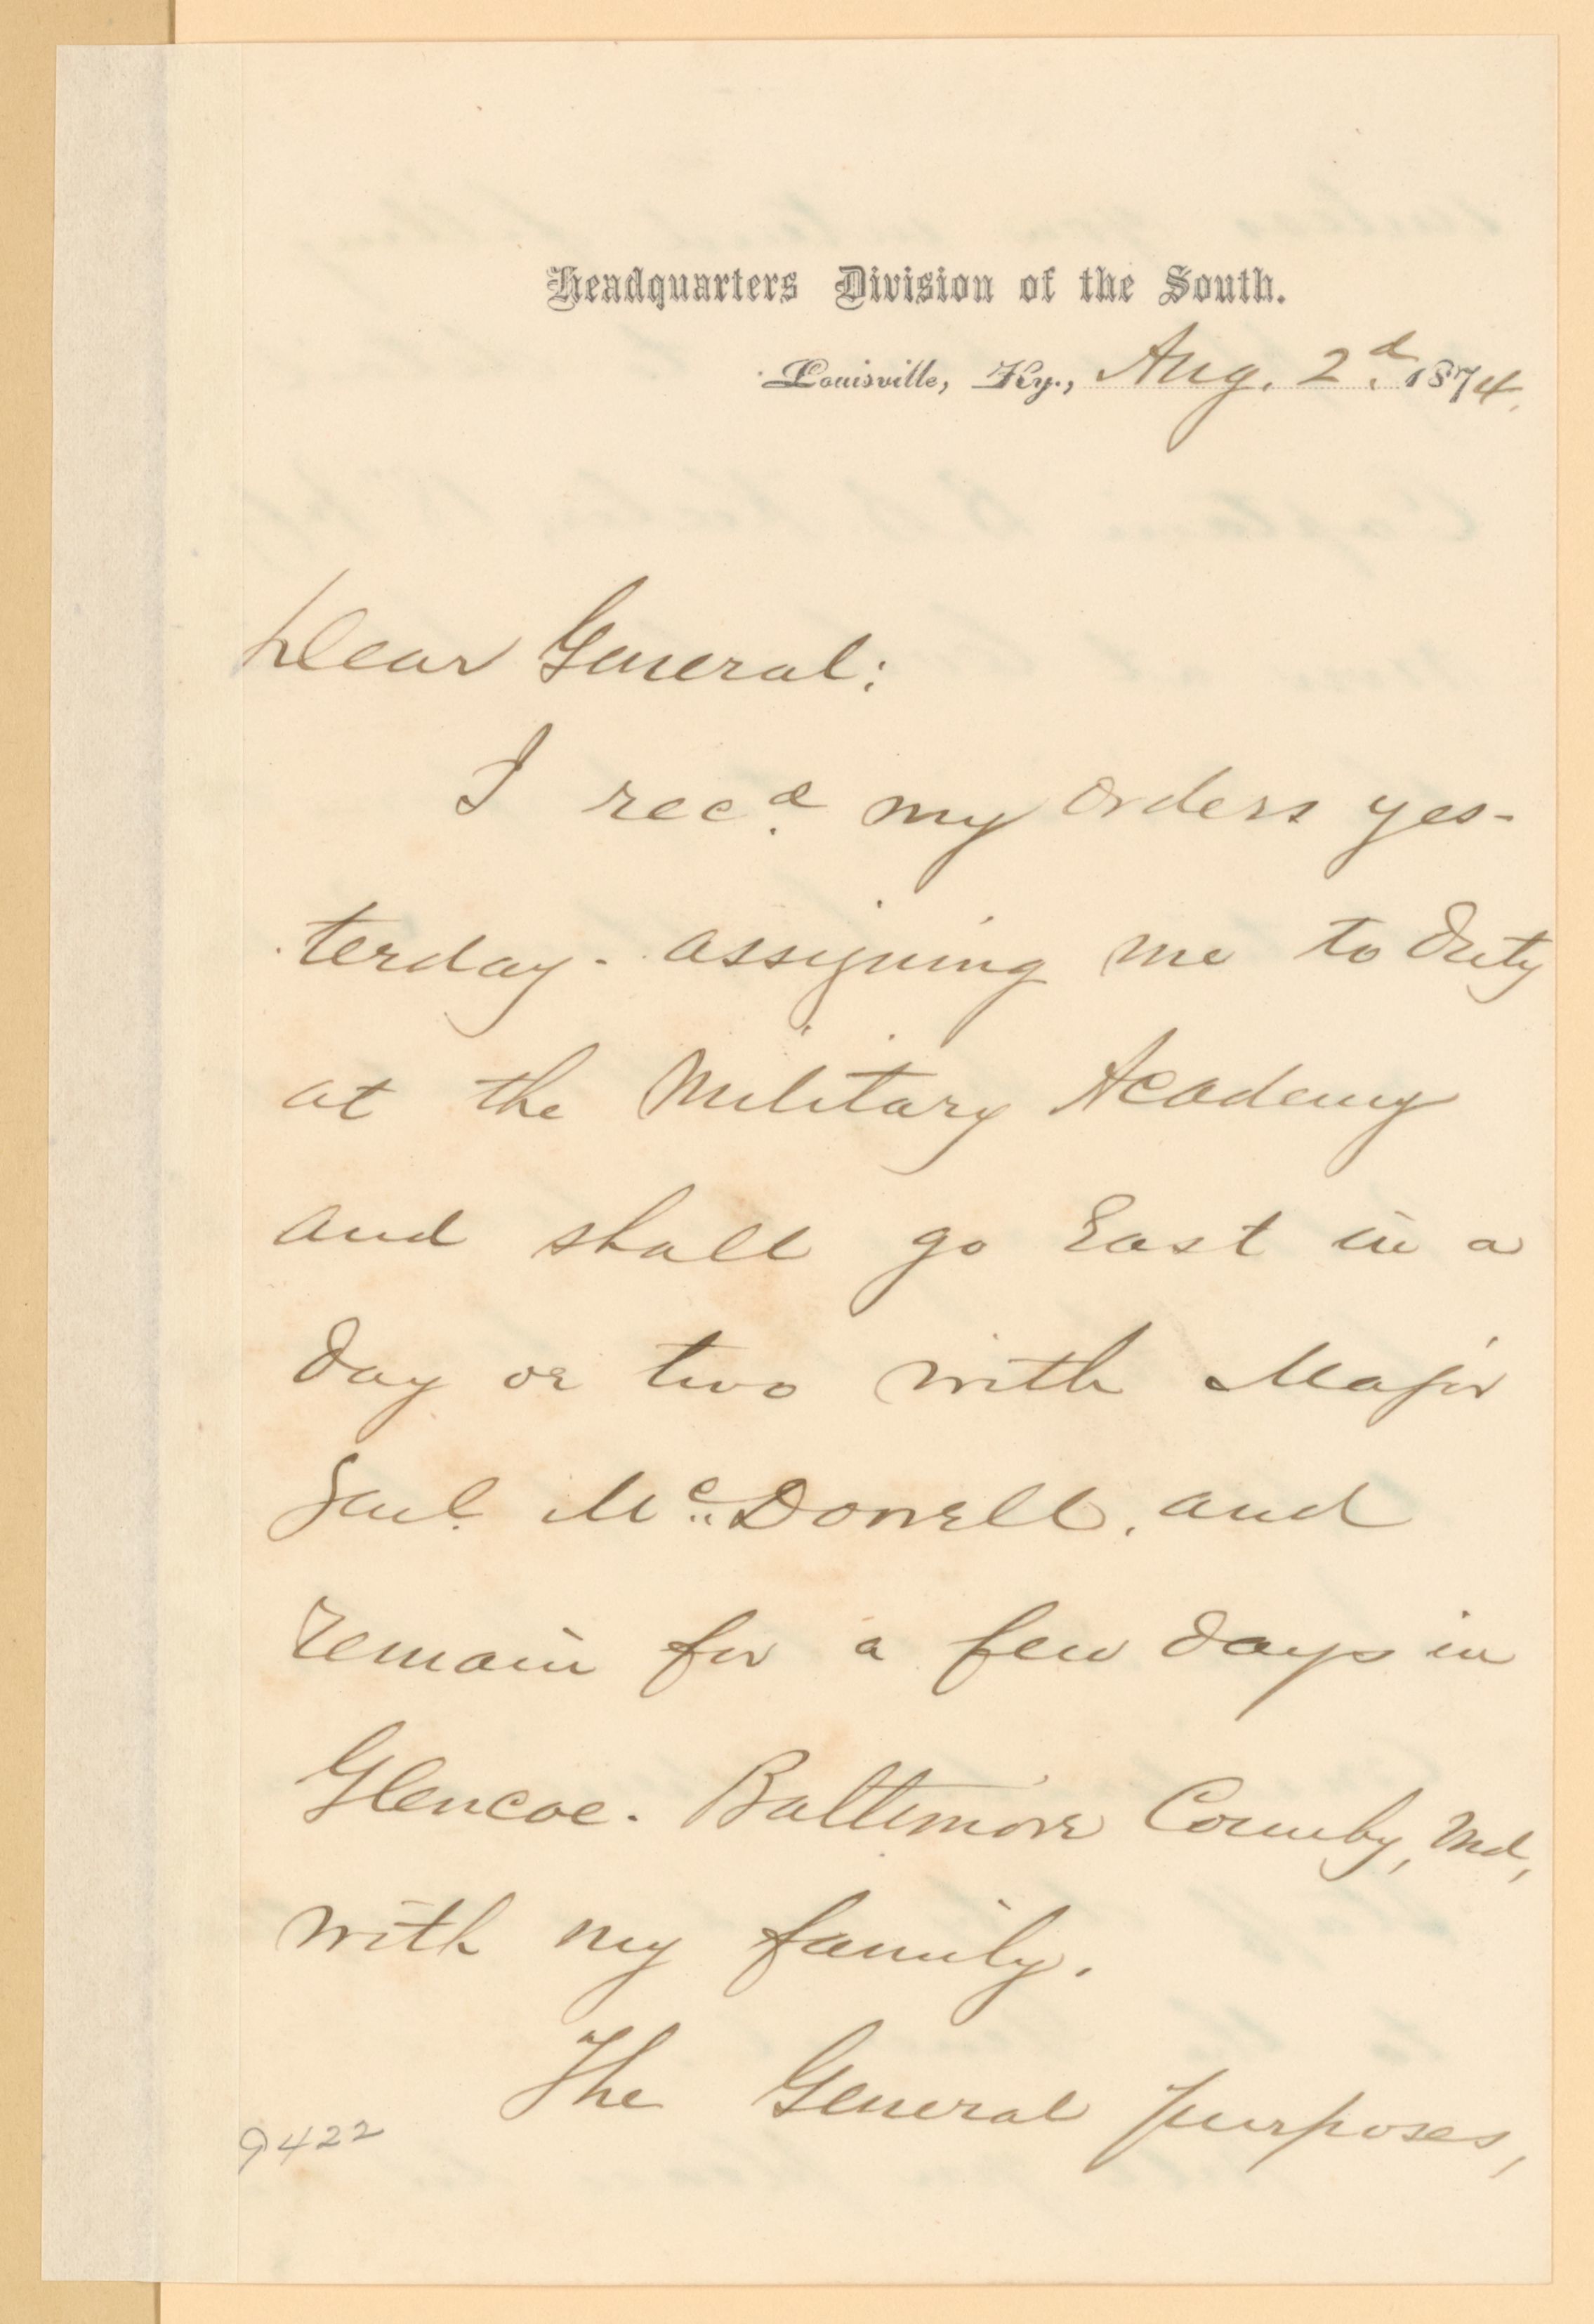 Headquarters Division of the South.
Louisville, Ky., Aug. 2d. 1874.
Dear General:
I recd. my orders yes-
terday - assigning me to duty
at the Military Academy
and shall go East in a
day or two with Major
Genl. McDowell, and
remain for a few days in
Glencoe. Baltimore County, Md,
with my family.
The General purposes,
9422